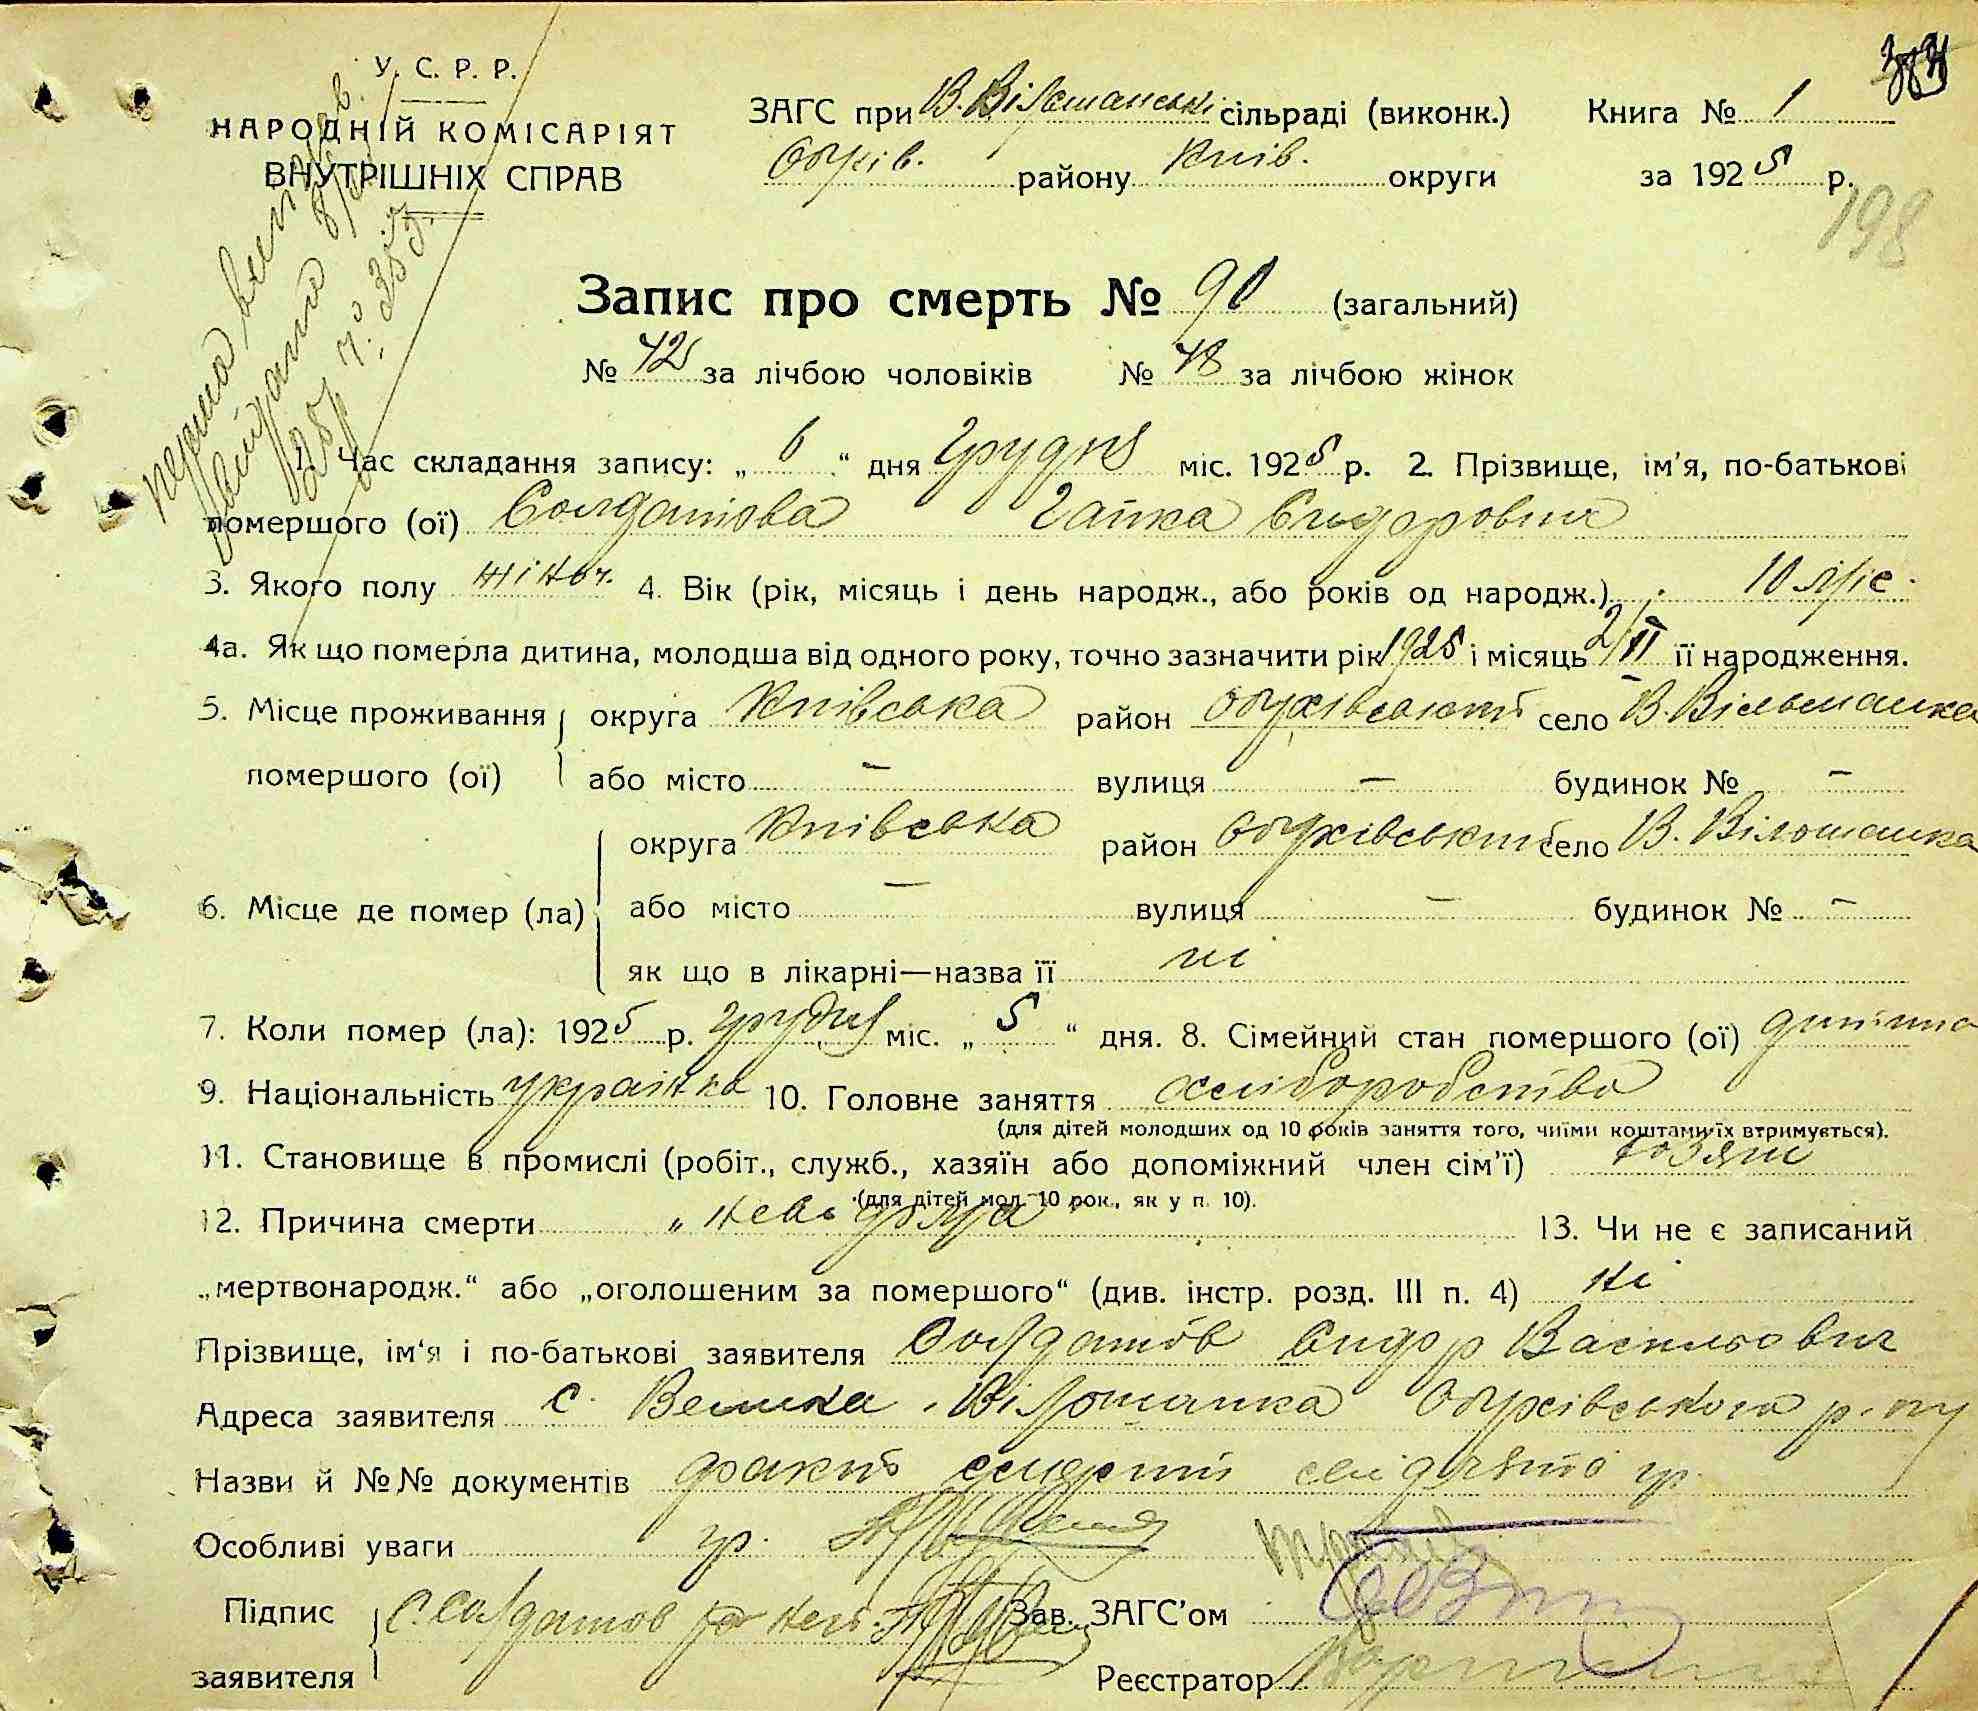 У. С. Р. Р.
НАРОДНІЙ КОМІСАРІЯТ
ВНУТРІШНІХ СПРАВ
ЗАГС при В. Вільшанські сільраді (виконк.) Книга № 1
Обухів. району Київ. округи за 1925 р.
198
Запис про смерть № 90 (загальний)
№ 42 за лічбою чоловіків № 48 за лічбою жінок
1. Час складання запису: „ 6 “ дня грудня міс. 1925 р. 2. Прізвище, ім'я, по-батькові
помершого (ої) Солдатова Гапка Сидоровна
3. Якого полу жіноч. 4. Вік (рік, місяць і день народж., або років од народж.) 10 міс.
4а. Як що померла дитина, молодша від одного року, точно зазначити рік 1925 і місяць 2/II її народження.
5. Місце проживання округа Київська район Обухівський село В. Вільшанка
помершого (ої) або місто — вулиця — будинок № —
округа Київська район Обухівський село В. Вільшанка
6. Місце де помер (ла) або місто — вулиця — будинок № —
як що в лікарні—назва її ні
7. Коли помер (ла): 1925 р. грудня міс. „ 5 “ дня. 8. Сімейний стан помершого (ої) дитина
9. Національність українка 10. Головне заняття хліборобство
(для дітей молодших од 10 років заняття того, чиїми коштами їх втримується).
11. Становище в промислі (робіт., служб., хазяїн або допоміжний член сім'ї) хозяїн
(для дітей мол. 10 рок., як у п. 10).
12. Причина смерти 13. Чи не є записаний
„мертвонародж.“ або „оголошеним за помершого“ (див. інстр. розд. III п. 4) ні
Прізвище, ім'я і по-батькові заявителя Солдатов Сидор Васильович
Адреса заявителя с. Велика Вільшанка Обухівського р-ну
Назви й №№ документів факт смерти свідчить гр.
Особливі уваги гр.
Підпис С. Солдатов за неп. Зав. ЗАГС'ом
заявителя Реєстратор